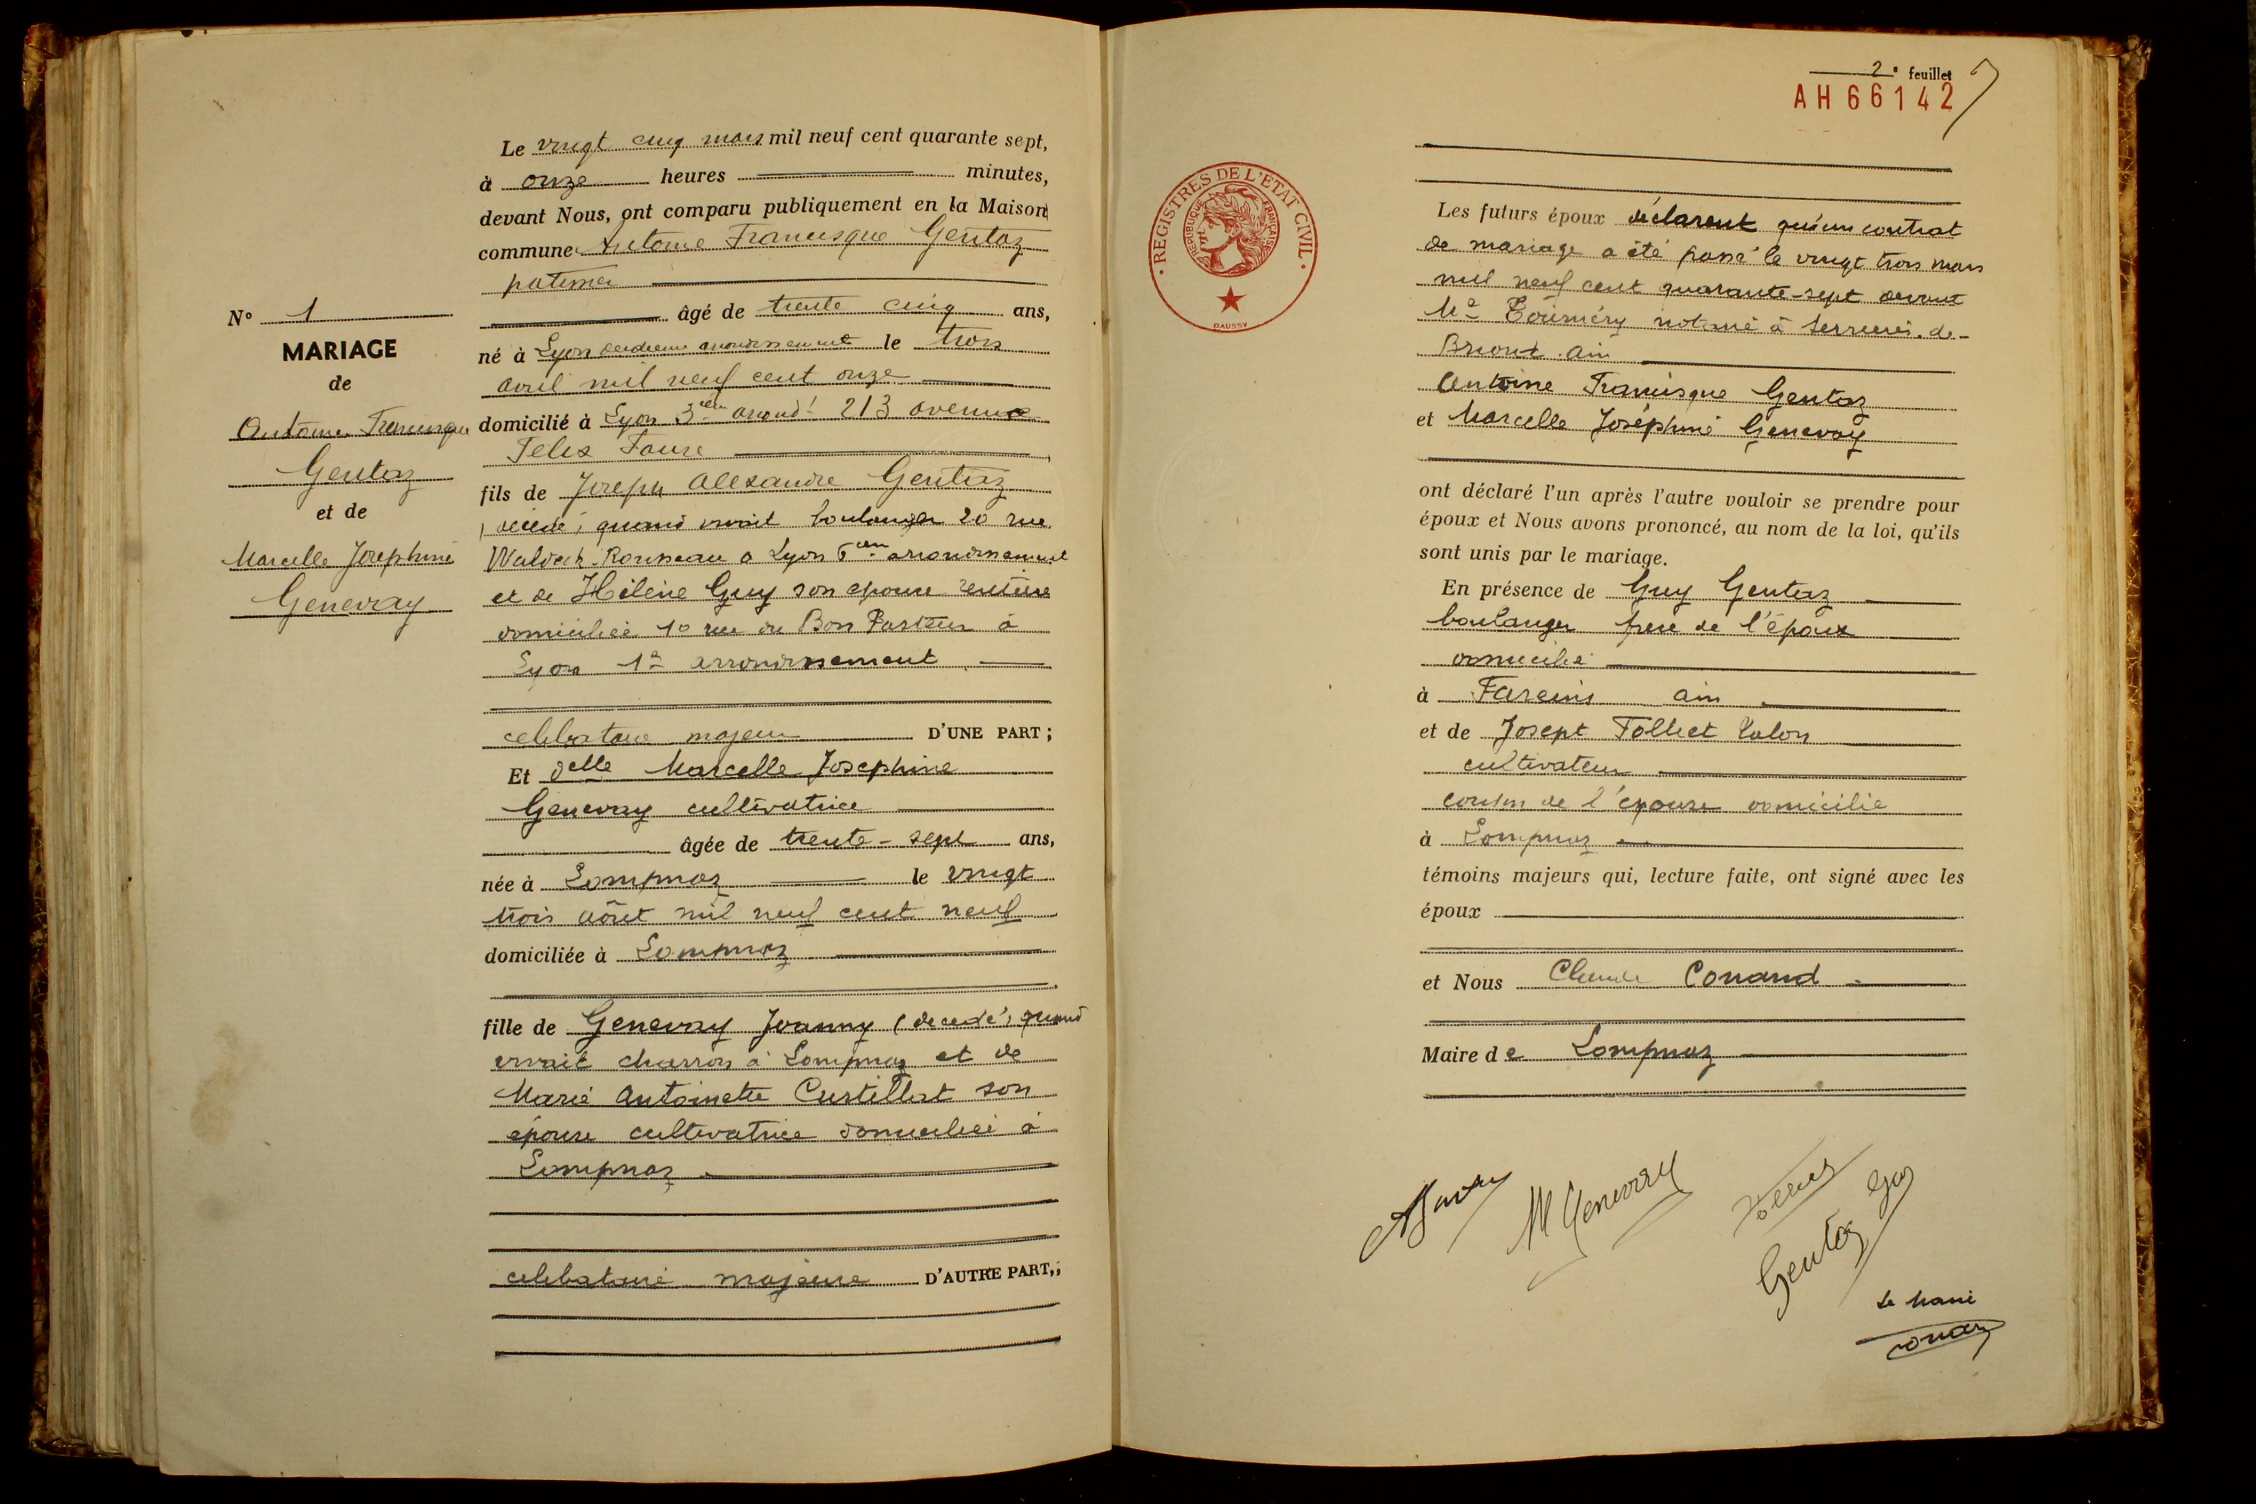 Le vingt cinq mars mil neuf cent quarante sept,
à onze heures minutes,
devant Nous, ont comparu publiquement en la Maison
commune Antoine Francisque Gentaz
âgé de trente cinq ans,
né à Lyon arrondissement le trois
avril mil neuf cent onze
domicilié à Lyon 3e arrond^t 213 avenue
Felix Faure
fils de Joseph Alexandre Gentaz
(décédé) quand vivait boulanger 20 rue
Waldeck-Rousseau a Lyon 6e arrondissement
et de Hélène Guy son epouse rentière
domiciliée 10 rue du Bon Pasteur à
Lyon 1er arrondissement
celibataire majeur D'UNE PART ;
Et delle Marcelle Josephine
Genevay cultivatrice
âgée de trente-sept ans,
née à Lompnaz le vingt
trois aôut mil neuf cent neuf
domiciliée à Lompnaz
fille de Genevay Joanny (decedé) quand
vivait charron à Lompnaz et de
Marie Antoinette Custillat son
épouse cultivatrice domiciliée à
Lompnaz
celibataire majeure D'AUTRE PART,;
N° 1
MARIAGE
de
Antoine Francisque
Gentaz
et de
Marcelle Josephine
Genevay
2e feuillet
AH66142
REGISTRES DE L'ETAT CIVIL
REPUBLIQUE FRANÇAISE
DAUSSY
Les futurs époux déclarent qu'un contrat
de mariage a été passé le vingt trois mars
mil neuf cent quarante-sept devant
Me notaire à Serrières-de-
Briord Ain
Antoine Francisque Gentaz
et Marcelle Joséphine Genevay
ont déclaré l'un après l'autre vouloir se prendre pour
époux et Nous avons prononcé, au nom de la loi, qu'ils
sont unis par le mariage.
En présence de Guy Gentaz
boulanger frere de l'époux
domicilié
à Fareins ain
et de Josept Folliet
cultivateur
cousin de l'epouse domicilié
à Lompnaz
témoins majeurs qui, lecture faite, ont signé avec les
époux
et Nous Claude Conand
Maire de Lompnaz
M Genevay
Gentaz Guy
Le Maire
Conand